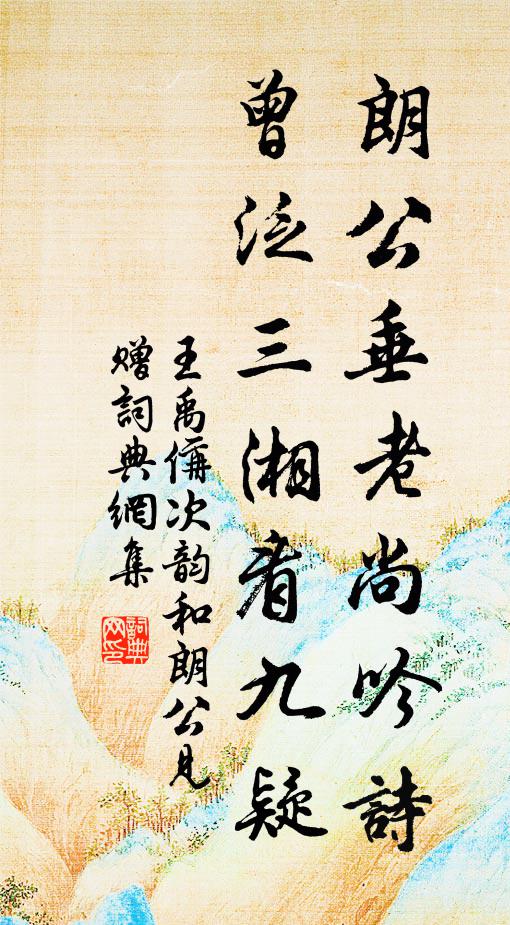 朗公垂老尚吟詩
曾泛三湘看九疑
王禹偁次韵和朗公見
贈詞典網集
詞典
网印